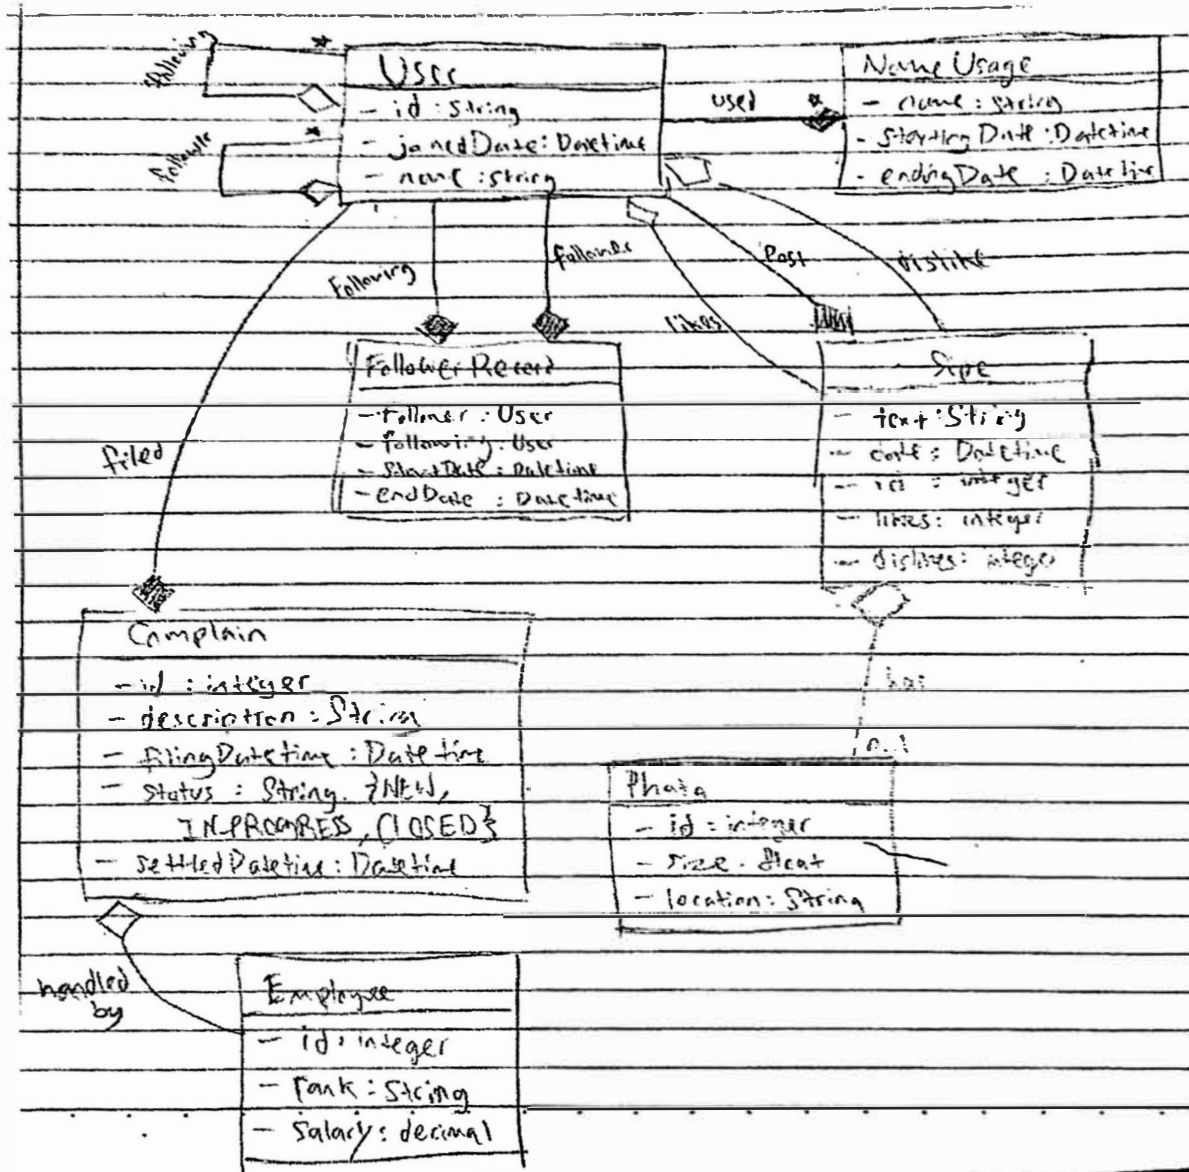 following
*
User
- id : String
- joinedDate : Datetime
- name : String
*
used
*
Name Usage
- name : String
- startingDate : Datetime
- endingDate : Datetime
Following
follower
likes
Post
dislike
filed
FollowerRecord
- follower : User
- following : User
- StartDate : Datetime
- endDate : Datetime
- text : String
- date : Datetime
- id : integer
- likes : integer
- dislikes : integer
has
Complain
- id : integer
- description : String
- filingDatetime : Datetime
- status : String. {NEW,
IN-PROGRESS, CLOSED}
- settledDatetime : Datetime
- id : integer
- size : float
- location : String
handled
by
Employee
- id : integer
- rank : String
- Salary : decimal